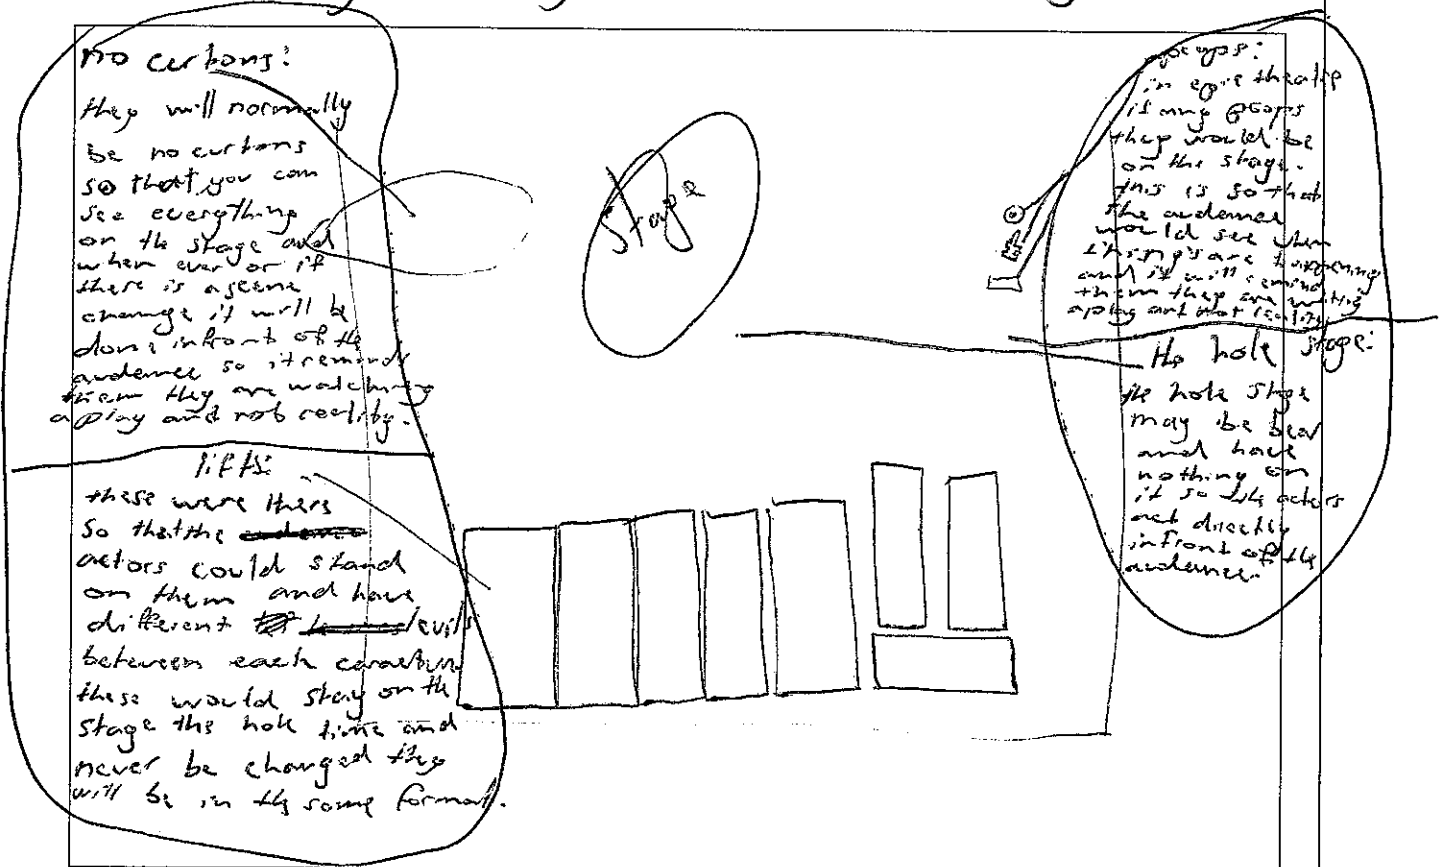 no curtons:
they will normally
be no curtons
so that you can
see everything
on the stage and
when ever or if
there is a scene
change it will be
done infront of the
audence so it reminds
them they are watching
a play and not reality.
lifts:
these were there
so that the
actors could stand
on them and have
different levils
between each
these would stay on the
stage the hole time and
never be changed they
will be in the same format.
Stage
props:
in epic theatre
if any props
they would be
on the stage.
this is so that
the audence
would see when
things are happening
and it will remind
them they are
a play and not reality
the hole stage:
the hole stage
may be bear
and have
nothing on
it so the actors
act directly
infront of the
audence.